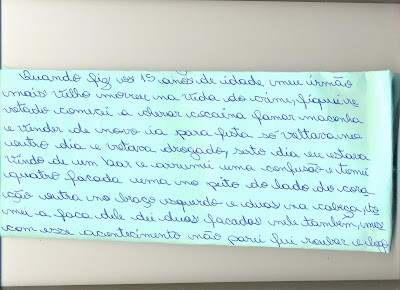 Quando fiz os 15 anos de idade meu irmão
mais vilho morreu na vida do crime, fiquei re
votado começei a cherar cocaina famar maconha
e vinder de novo ia para festa só voltava no
outro dia e votava drogado, serto dia eu estava
vindo de um bar e arrumei uma confusão e tomei
quatro facada uma no peito do lado do cora
ção outra no braço esquerdo e duas na cabeça, to
mei a faca dele dei duas facadas nele também, mes
com esse acontecimento não parei fui roubar e